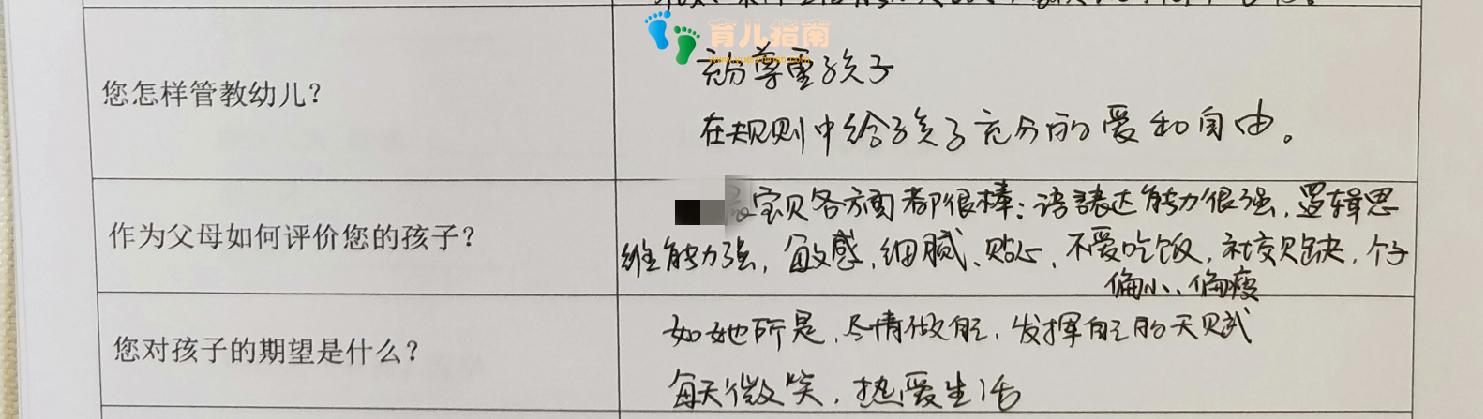 育儿指南
您怎样管教幼儿？
充分尊重孩子
在规则中给孩子充分的爱和自由。
作为父母如何评价您的孩子？
宝贝各方面都很棒：语言表达能力很强，逻辑思
维能力强，敏感、细腻、贴心、不爱吃饭，社交欠缺，个子
偏小、偏瘦
您对孩子的期望是什么？
如她所是，尽情做自己，发挥自己的天赋
每天微笑，热爱生活